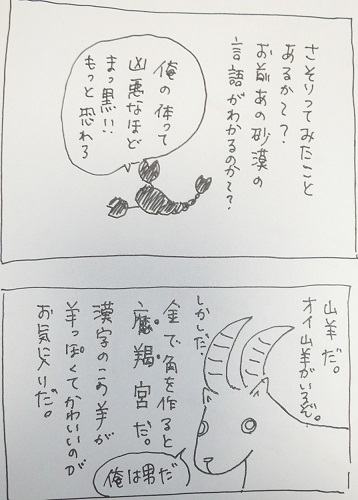 さそりってみたこと
あるか〜?
お前あの砂漠の
言語がわかるのか〜?
俺の体って
凶悪なほど
まっ黒い!!
もっと恐れろ
山羊だ。
オイ山羊がいるぞ。
しかしだ、
金で角を作ると
魔羯宮だ。
漢字のこの羊が
羊っぽくてかわいいのが
お気に入りだ。
俺は男だ